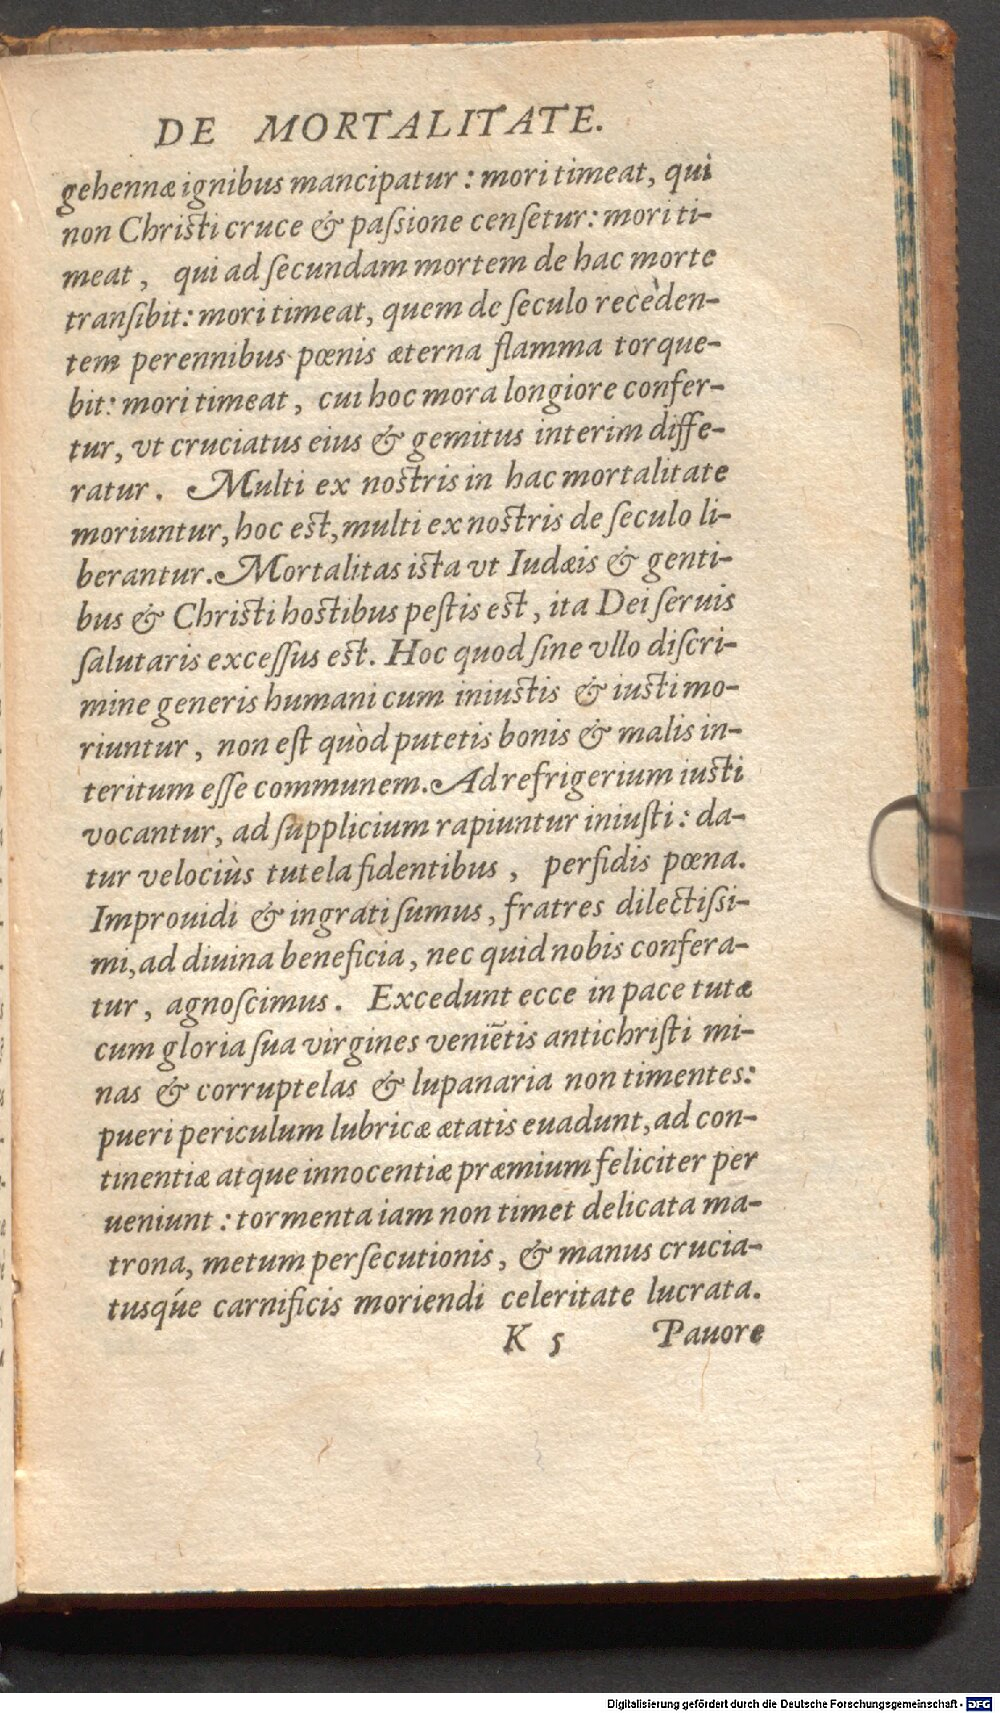 DE MORTALITATE.
gehennæ ignibus mancipatur : mori timeat, qui
non Christi cruce & paſsione cenſetur: mori ti-
meat , qui ad ſecundam mortem de hac morte
tranſibit: mori timeat, quem de ſeculo recèden-
tem perennibus pœnis æterna flamma torque-
bit: mori timeat , cui hoc mora longiore confer-
tur, vt cruciatus eius & gemitus interim diffe-
ratur . Multi ex nostris in hac mortalitate
moriuntur, hoc est, multi ex nostris de ſeculo li-
berantur. Mortalitas ista vt Iudæis & genti-
bus & Christi hostibus peſtis est , ita Dei ſeruis
ſalutaris exceſſus est. Hoc quod ſine vllo diſcri-
mine generis humani cum iniustis & iusti mo-
riuntur , non eſt quòd putetis bonis & malis in-
teritum eſſe communem. Ad refrigerium iusti
vocantur, ad ſupplicium rapiuntur iniuſti : da-
tur velociùs tutela fidentibus , perfidis pœna.
Improuidi & ingrati ſumus, fratres dilectiſsi-
mi, ad diuina beneficia, nec quid nobis confera-
tur , agnoſcimus . Excedunt ecce in pace tutæ
cum gloria ſua virgines veniētis antichriſti mi-
nas & corruptelas & lupanaria non timentes:
pueri periculum lubricæ ætatis euadunt, ad con-
tinentiæ atque innocentiæ præmium feliciter per
ueniunt : tormenta iam non timet delicata ma-
trona, metum perſecutionis, & manus crucia-
tusq́ue carnificis moriendi celeritate lucrata.
K 5 Pauore
Digitalisierung gefördert durch die Deutsche Forschungsgemeinschaft - DFG